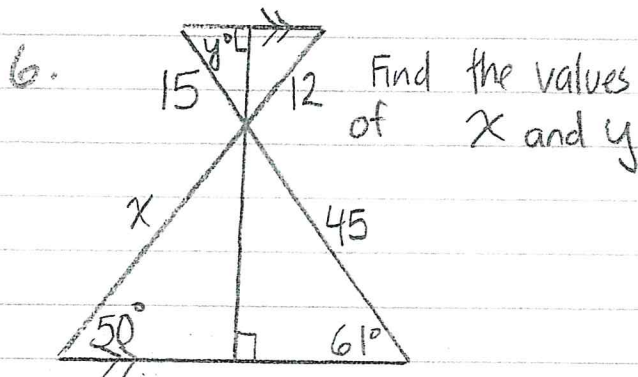 6.
y°
15
12
Find the values
of x and y
x
45
50°
61°